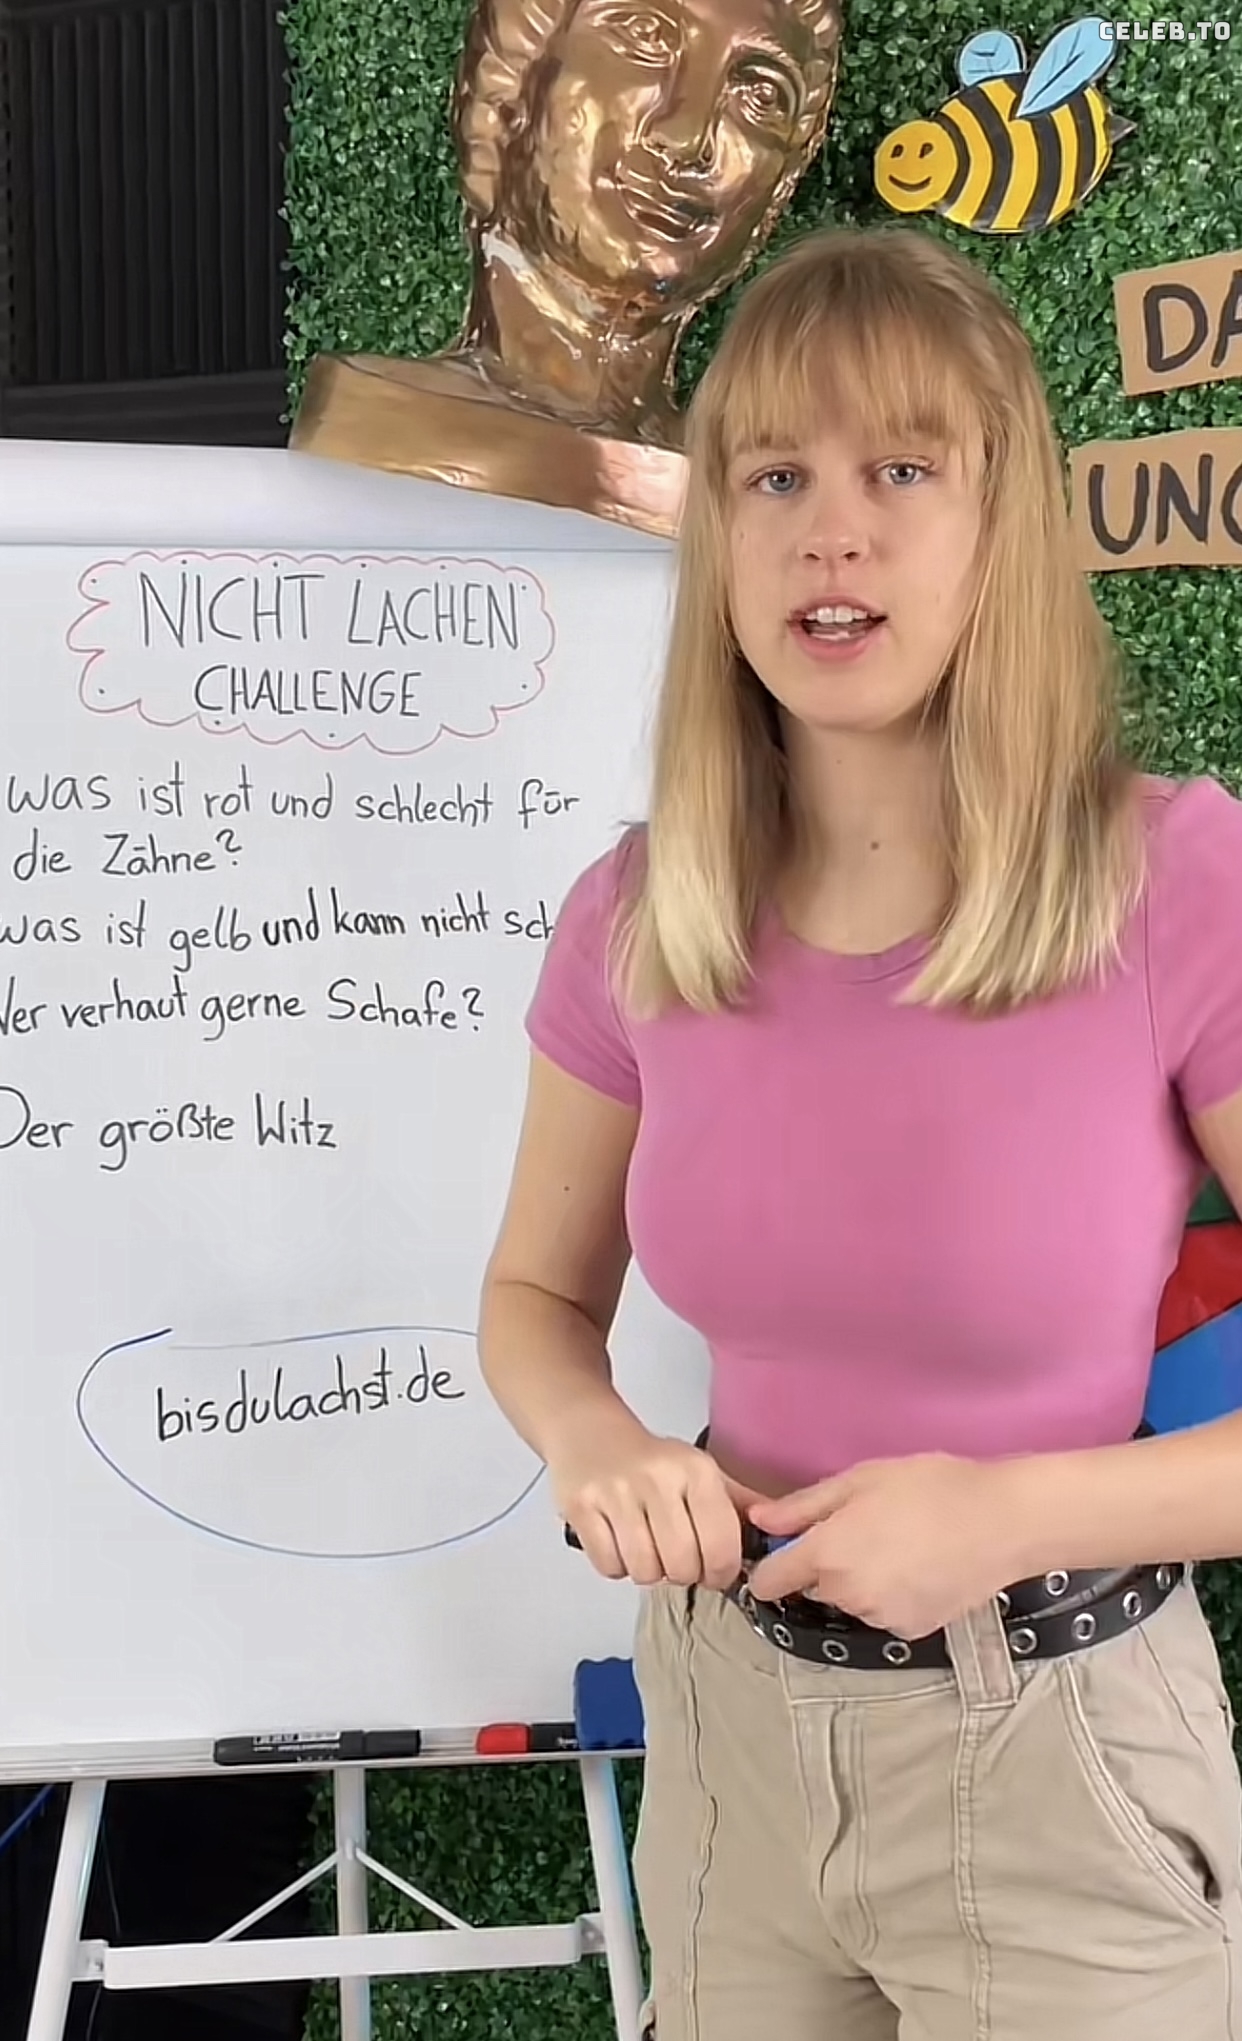 CELEB.TO
DA
UNG
NICHT LACHEN
CHALLENGE
was ist rot und schlecht für
die Zähne?
was ist gelb und kann nicht sch
Wer verhaut gerne Schafe?
Der größte Witz
bisdulachst.de